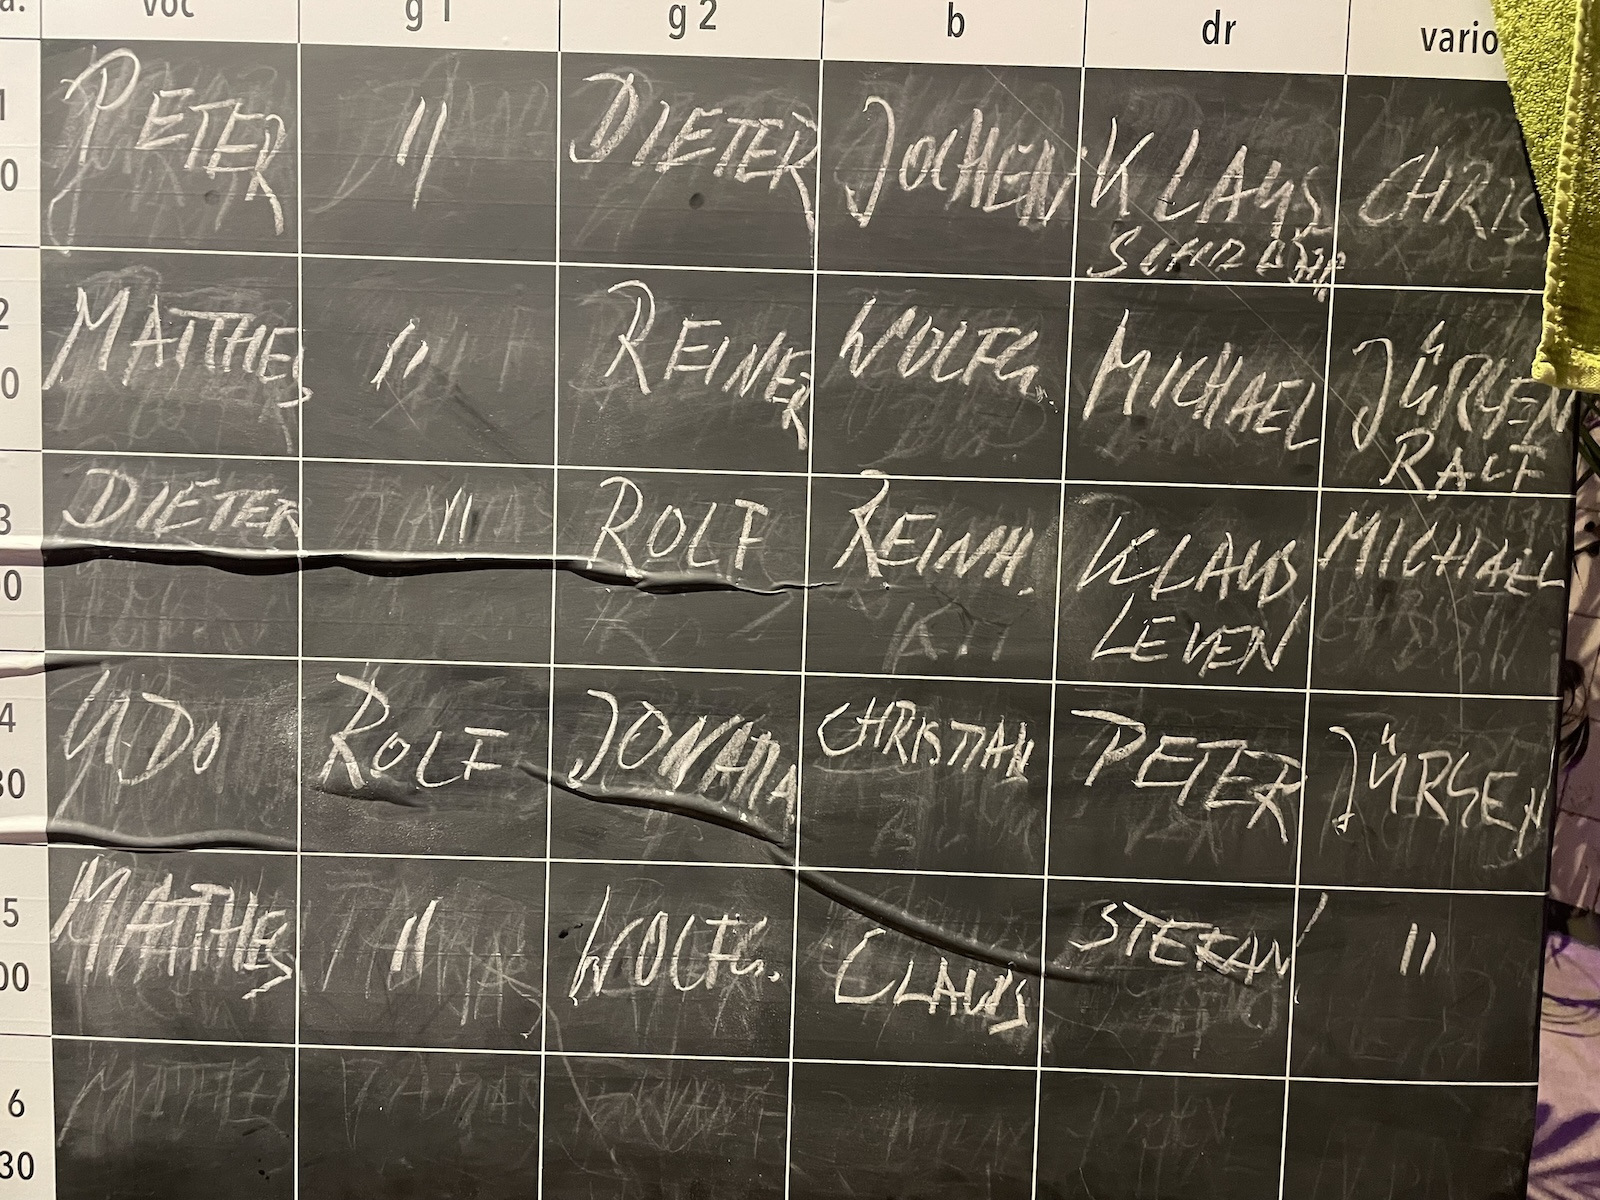 voc g 1 g 2 b dr vario
1 PETER " DIETER JOCHEN KLAUS CHRIS
0
2 MATTHES " REINER WOLFG. MICHAEL JÜRGEN
0 RALF
3 DIETER " ROLF REINH. KLAUS MICHAEL
00 LEVEN
4 UDO ROLF CHRISTIAN PETER JÜRGEN
30
5 MATTHES " WOLFG. CLAUS STEFAN "
00
6
30